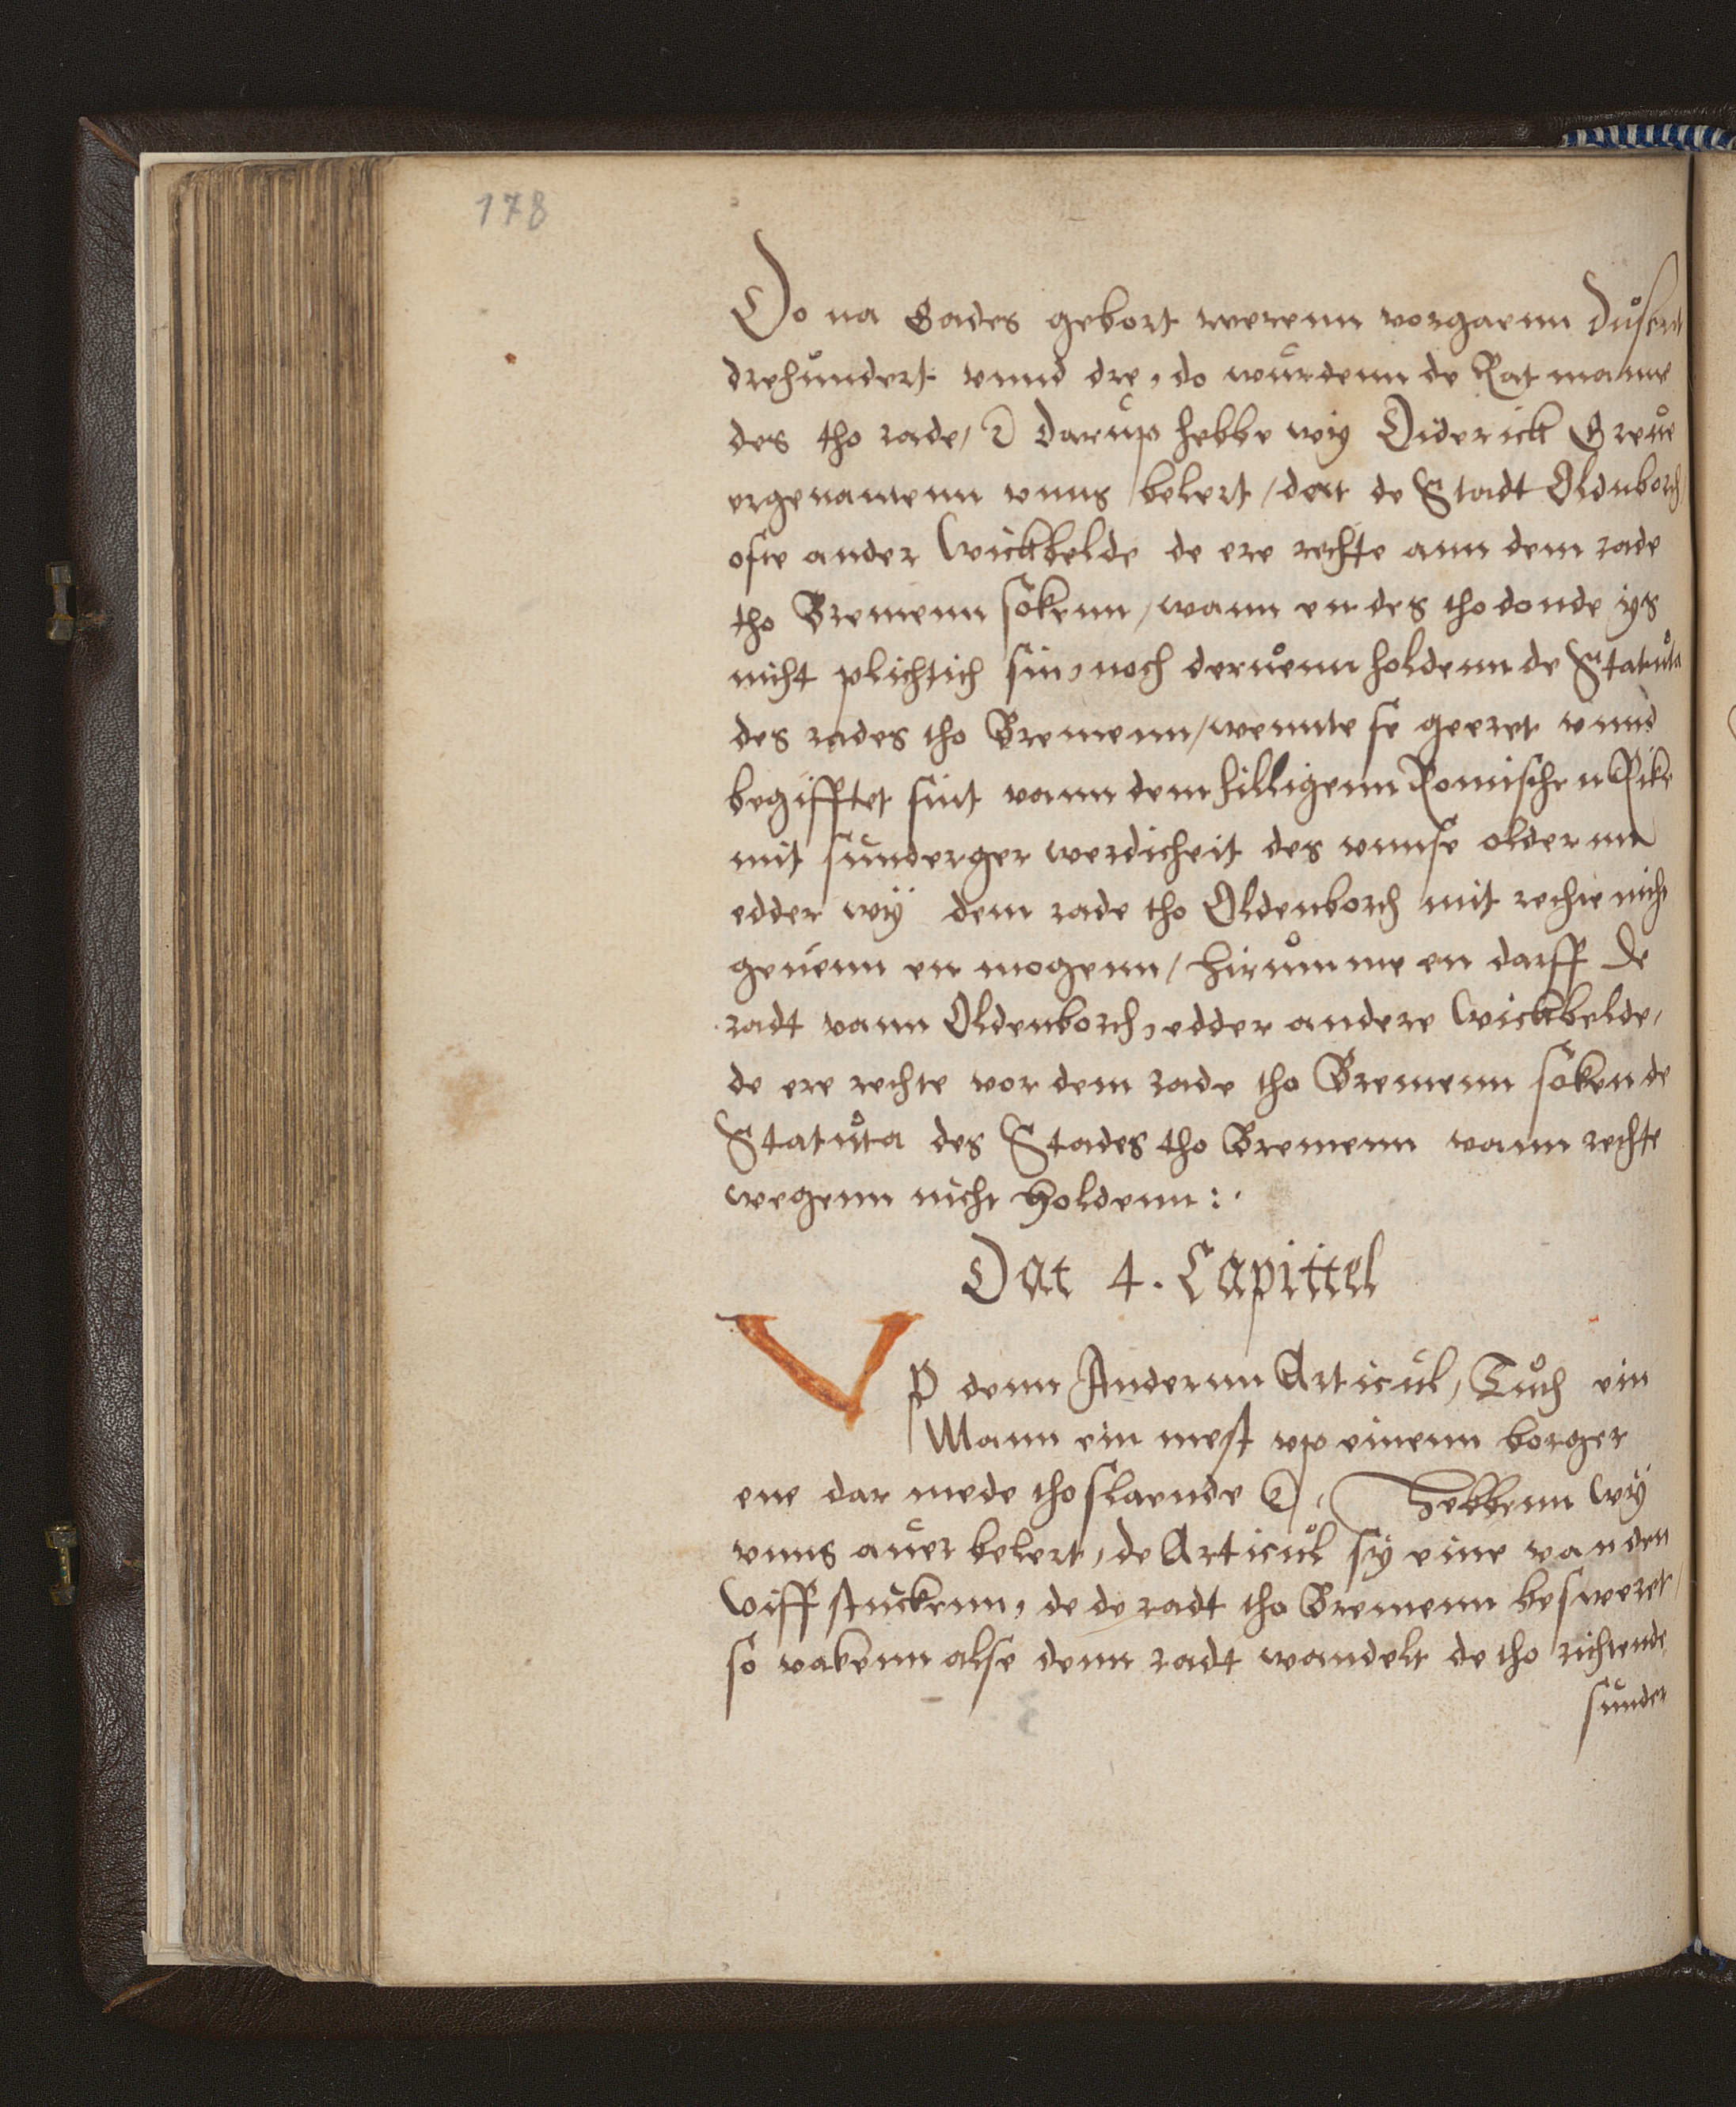 178
Do na Gades gebort werenn vorgaenn Dusent
drehundert vnnd dre, do wurdenn de Rat manne
des tho rade, Darup hebbe wy Diderick Greue
ergenamenn vnns belert, dat de Stadt Oldnborch
ofte ander Wickbelde de ere rechte ann dem rade
tho Bremenn sökenn, wann en des tho donde ys
nicht plichtich sin, noch deruenn holdenn de Statuta
des rades tho Bremenn, wennte se geeret vnnd
begifftet sint vann dem hilligenn Romischenn Rike
mit sunderger werdicheit des vnnse oldernn
edder wÿ dem rade tho Oldenborch mit rechte nicht
geuenn en mogenn, hirumme en darff de
radt vann Oldenborch, edder andere Wickbelde,
de ere rechte vor dem rade tho Bremenn sokende
Statuta des Stades tho Bremenn vann rechte
wegenn nicht holdenn :.
Dat 4. Capittel
VP denn Andernn Articul, Tuch ein
Mann ein mest vp einenn borger
ene dar mede tho slaende Hebbenn wÿ
vnns auer belert, de Articul sÿ eine van den
Wiff stuckenn, de de radt tho Bremenn besweret,
so vakenn alse denn radt wandelt de tho richtende
sunder